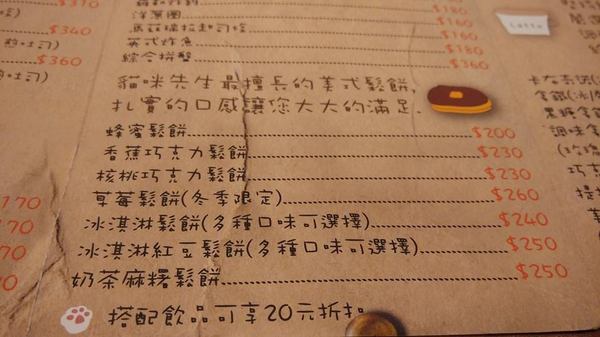 $370
$340
$360
170
170
70
70
$180
洋蔥圈 $160
馬茲瑞拉起司條 $160
英式炸魚 $180
綜合拼盤 $360
貓咪先生最擅長的美式鬆餅,
扎實的口感讓您大大的滿足.
蜂蜜鬆餅 $200
香蕉巧克力鬆餅 $230
核桃巧克力鬆餅 $230
草莓鬆餅(冬季限定) $260
冰淇淋鬆餅(多種口味可選擇) $240
冰淇淋紅豆鬆餅(多種口味可選擇) $250
奶茶麻糬鬆餅 $250
搭配飲品可享20元折扣
Latte